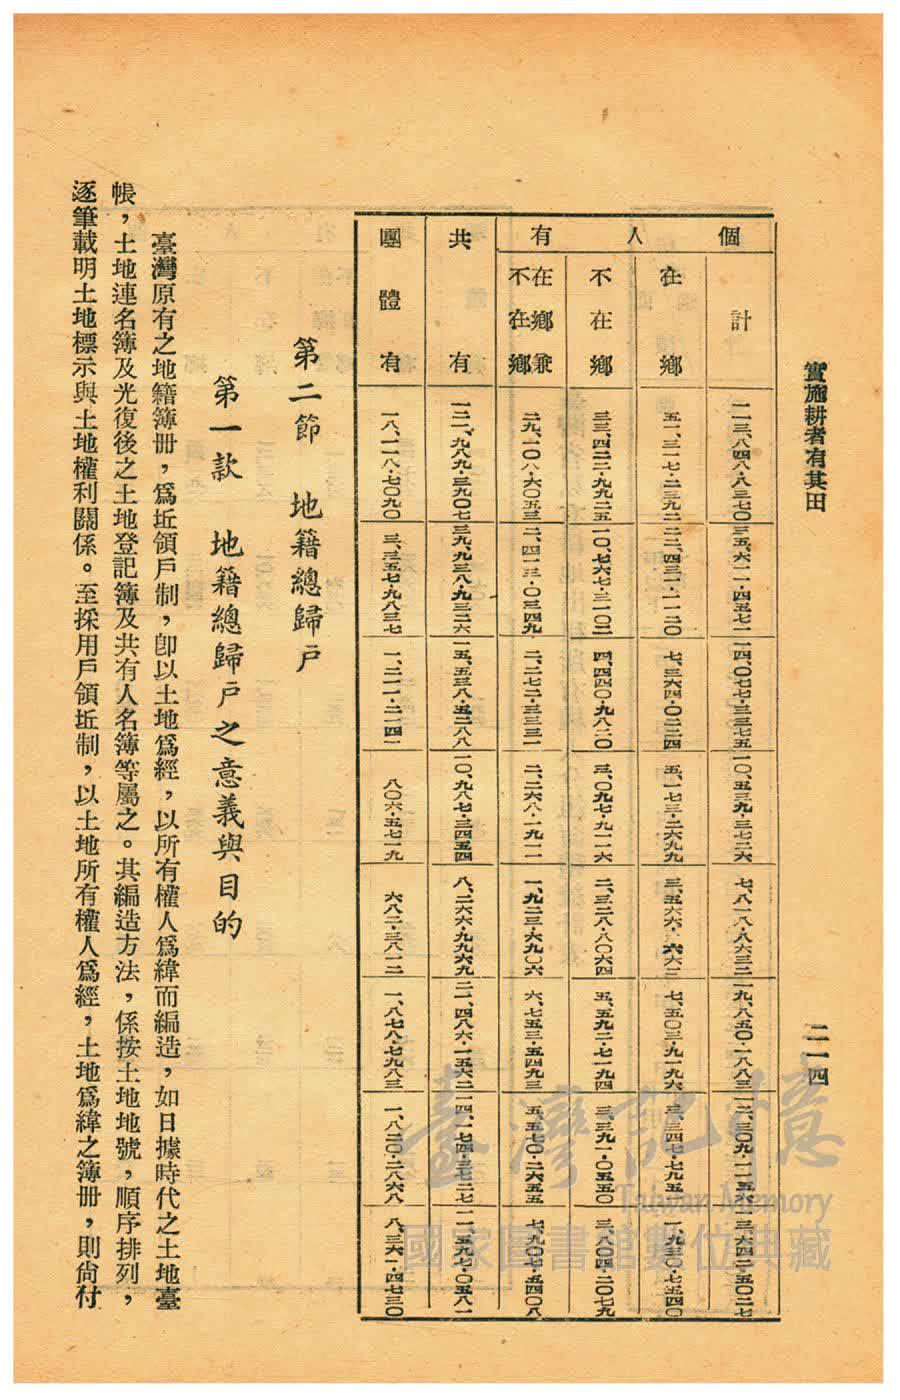 實施耕者有其田
二一四
個人有
計 一一三、八四八・八三七〇 三五、六一一・四五七一 一四、〇七七・三三七五 一〇、五三九・三七二六 七、八一八・八六三二 一九、八五〇・一八八三 一二、三〇九・一一五六 一三、六四二・五〇二七
在鄉 五一、三一七・二三九二 二二、四三一・一一二〇 七、三六四・〇二二四 五、一七三・二六九九 三、五六六・三六六二 七、五〇三・九一九六 三、三四七・七九五一 一、九三〇・七五四〇
不在鄉 三三、四二二・九九二五 一〇、七六七・三一〇二 四、四四〇・九八二〇 三、〇九七・九一一六 二、三二八・八〇六四 五、五九二・七一九四 三、三九一・〇五五〇 三、八〇四・二〇七九
在鄉兼不在鄉 二九、一〇八・六〇五三 二、四一三・〇三四九 二、二七二・三三三一 二、二六八・一九一一 一、九二三・六九〇六 六、七五三・五四九三 五、五七〇・二六五五 七、九〇七・五四〇八
共有 一二一、九八九・三九〇七 三九、九三八・九三二六 一五、五三八・五二八八 一〇、九八七・三四五四 八、二六六・九九六九 二一、四八六・一五六二 一四、一七四・三七二七 一一、五九七・〇五八一
團體有 一八、一一八・七〇九〇 三、三五七・九八三七 一、二一一・二一四一 八〇六・五七一九 六八二・三八一二 一、八七八・七九八三 一、八二〇・二八六八 八、三六一・四七三〇
第二節 地籍總歸戶
第一款 地籍總歸戶之意義與目的
臺灣原有之地籍簿冊，爲坵領戶制，卽以土地爲經，以所有權人爲緯而編造，如日據時代之土地臺
帳，土地連名簿及光復後之土地登記簿及共有人名簿等屬之。其編造方法，係按土地地號，順序排列，
逐筆載明土地標示與土地權利關係。至採用戶領坵制，以土地所有權人爲經，土地爲緯之簿冊，則尙付
臺灣記憶
Taiwan Memory
國家圖書館數位典藏